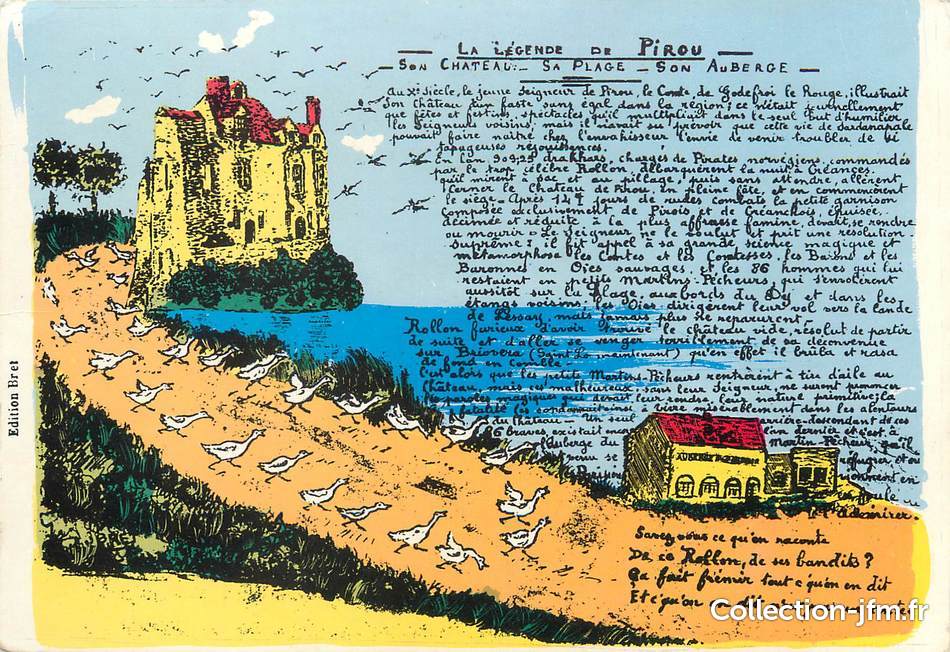 LA LÉGENDE DE PIROU
SON CHATEAU - SA PLAGE - SON AUBERGE
Au Xe Siècle, le jeune Seigneur de Pirou, le Comte de Godefroi le Rouge, illustrait
Son Château d'un faste sans égal dans la région; ce n'était journellement
que fêtes et festins, spectacles, qu'il multipliait dans le seul but d'humilier
les Seigneurs voisins, mais il n'avait su prévoir que cette vie de Sardanapale
pouvait faire naître chez l'envahisseur l'envie de venir troubler de si
tapageuses réjouissances.
En l'an 909, 25 drakkars, chargés de Pirates norvégiens, commandés
par le trop célèbre Rollon, débarquèrent la nuit à Créances,
qu'il mirent à sac et au pillage, puis sans attendre, allèrent
cerner le Château de Pirou, en pleine fête, et en commencèrent
le siège - Après 149 jours de rudes combats la petite garnison
composée exclusivement de Pirois et de Créanchois, épuisée,
décimée et réduite à la plus affreuse famine, devait se rendre
ou mourir. Le Seigneur ne le voulut et prit une résolution
suprême: il fit appel à sa grande science magique et
métamorphosa les Comtes et les Comtesses, les Barons et les
Baronnes en Oies sauvages, et les 86 hommes qui lui
restaient en petits Martins-Pêcheurs, qui s'envolèrent
aussitôt sur la plage, aux bords du Dy et dans les
étangs voisins. Les Oies dirigèrent leur vol vers la lande
de Lessay, mais jamais plus ne reparurent.
Rollon furieux d'avoir trouvé le château vide, résolut de partir
de suite et d'aller se venger terriblement de sa déconvenue
sur Briovera (Saint-Lo maintenant) qu'en effet il brûla et rasa
de fond en comble.
C'est alors que les petits Martins-Pêcheurs rentrèrent à tire d'aile au
château, mais ces malheureux, sans leur Seigneur, ne surent prononcer
les paroles magiques qui devait leur rendre leur nature primitive; la
fatalité les condamnait ainsi à vivre dans les alentours
du château - descendant de ces
86 braves, existait
l'Auberge du Martin Pêcheur, qu'il
venu se réfugier, et où
en
admirer.
AUBERGE
Savez-vous ce qu'on raconte
De ce Rollon, de ses bandits?
Ça fait frémir tout c'qu'on en dit
Et c'qu'on
Edition Bret
Collection-jfm.fr